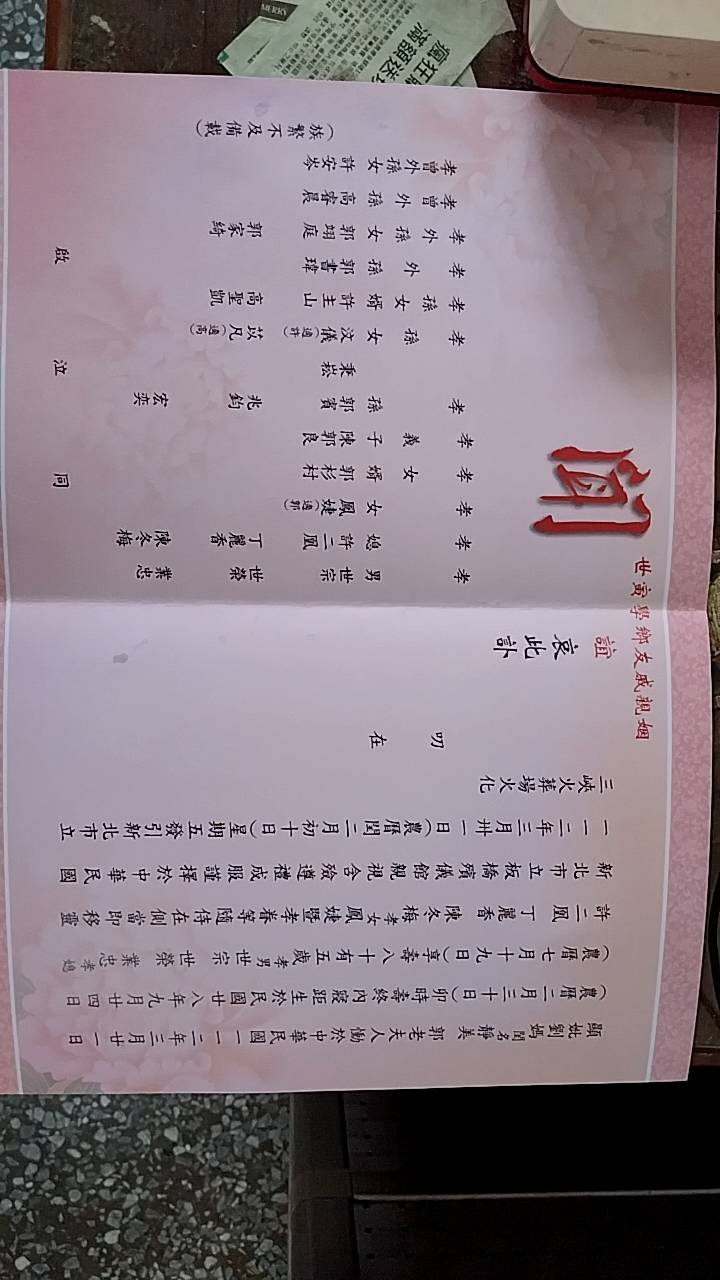 顯妣劉媽閨名靜美郭老夫人慟於中華民國一一二年三月廿一日
(農曆二月三十日)卯時壽終內寢距生於民國廿八年九月廿四日
(農曆七月十九日)享壽八十有五歲孝男世宗 世榮 業忠孝媳
許二凰 丁麗香 陳冬梅孝女鳳婕暨孝眷等隨侍在側當即移靈
新北市立板橋殯儀館親視含殮遵禮成服謹擇於中華民國
一一二年三月卅一日(農曆閏二月初十日)星期五發引新北市立
三峽火葬場火化
叨在
姻親戚友鄉學寅世
誼
哀此訃
聞
孝男世宗 世榮 業忠
孝媳許二凰 丁麗香 陳冬梅
孝女鳳婕(適郭)
孝女婿郭杉村
孝義子陳郭良
孝孫郭賓 兆鈞 宏奕
秉松
孝孫女汶儀(適許) 以凡(適高)
孝孫女婿許主山 高聖凱
孝外孫郭書瑋
孝外孫女郭翊庭 郭家綺
孝曾外孫高睿晨
孝曾外孫女許安岑
(族繁不及備載)
同泣啟